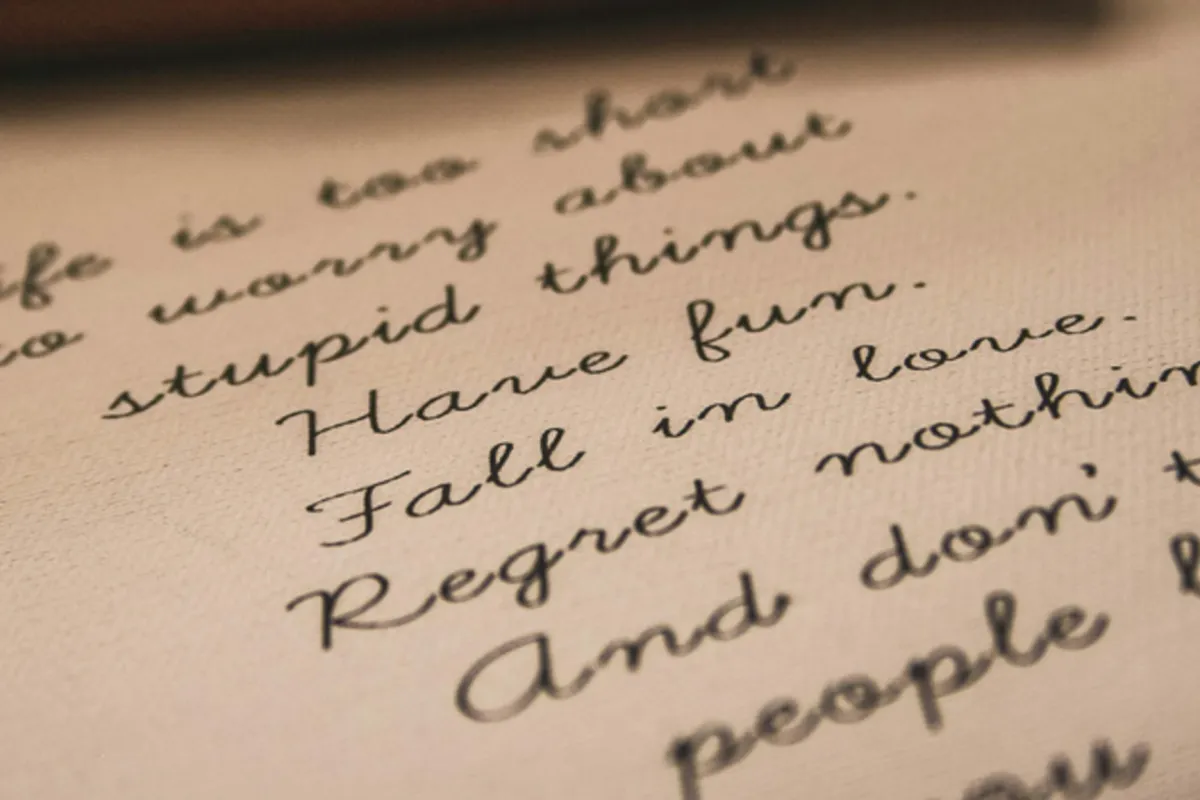 ife is too short
to worry about
stupid things.
Have fun.
Fall in love.
Regret nothin
And don't
people
ou